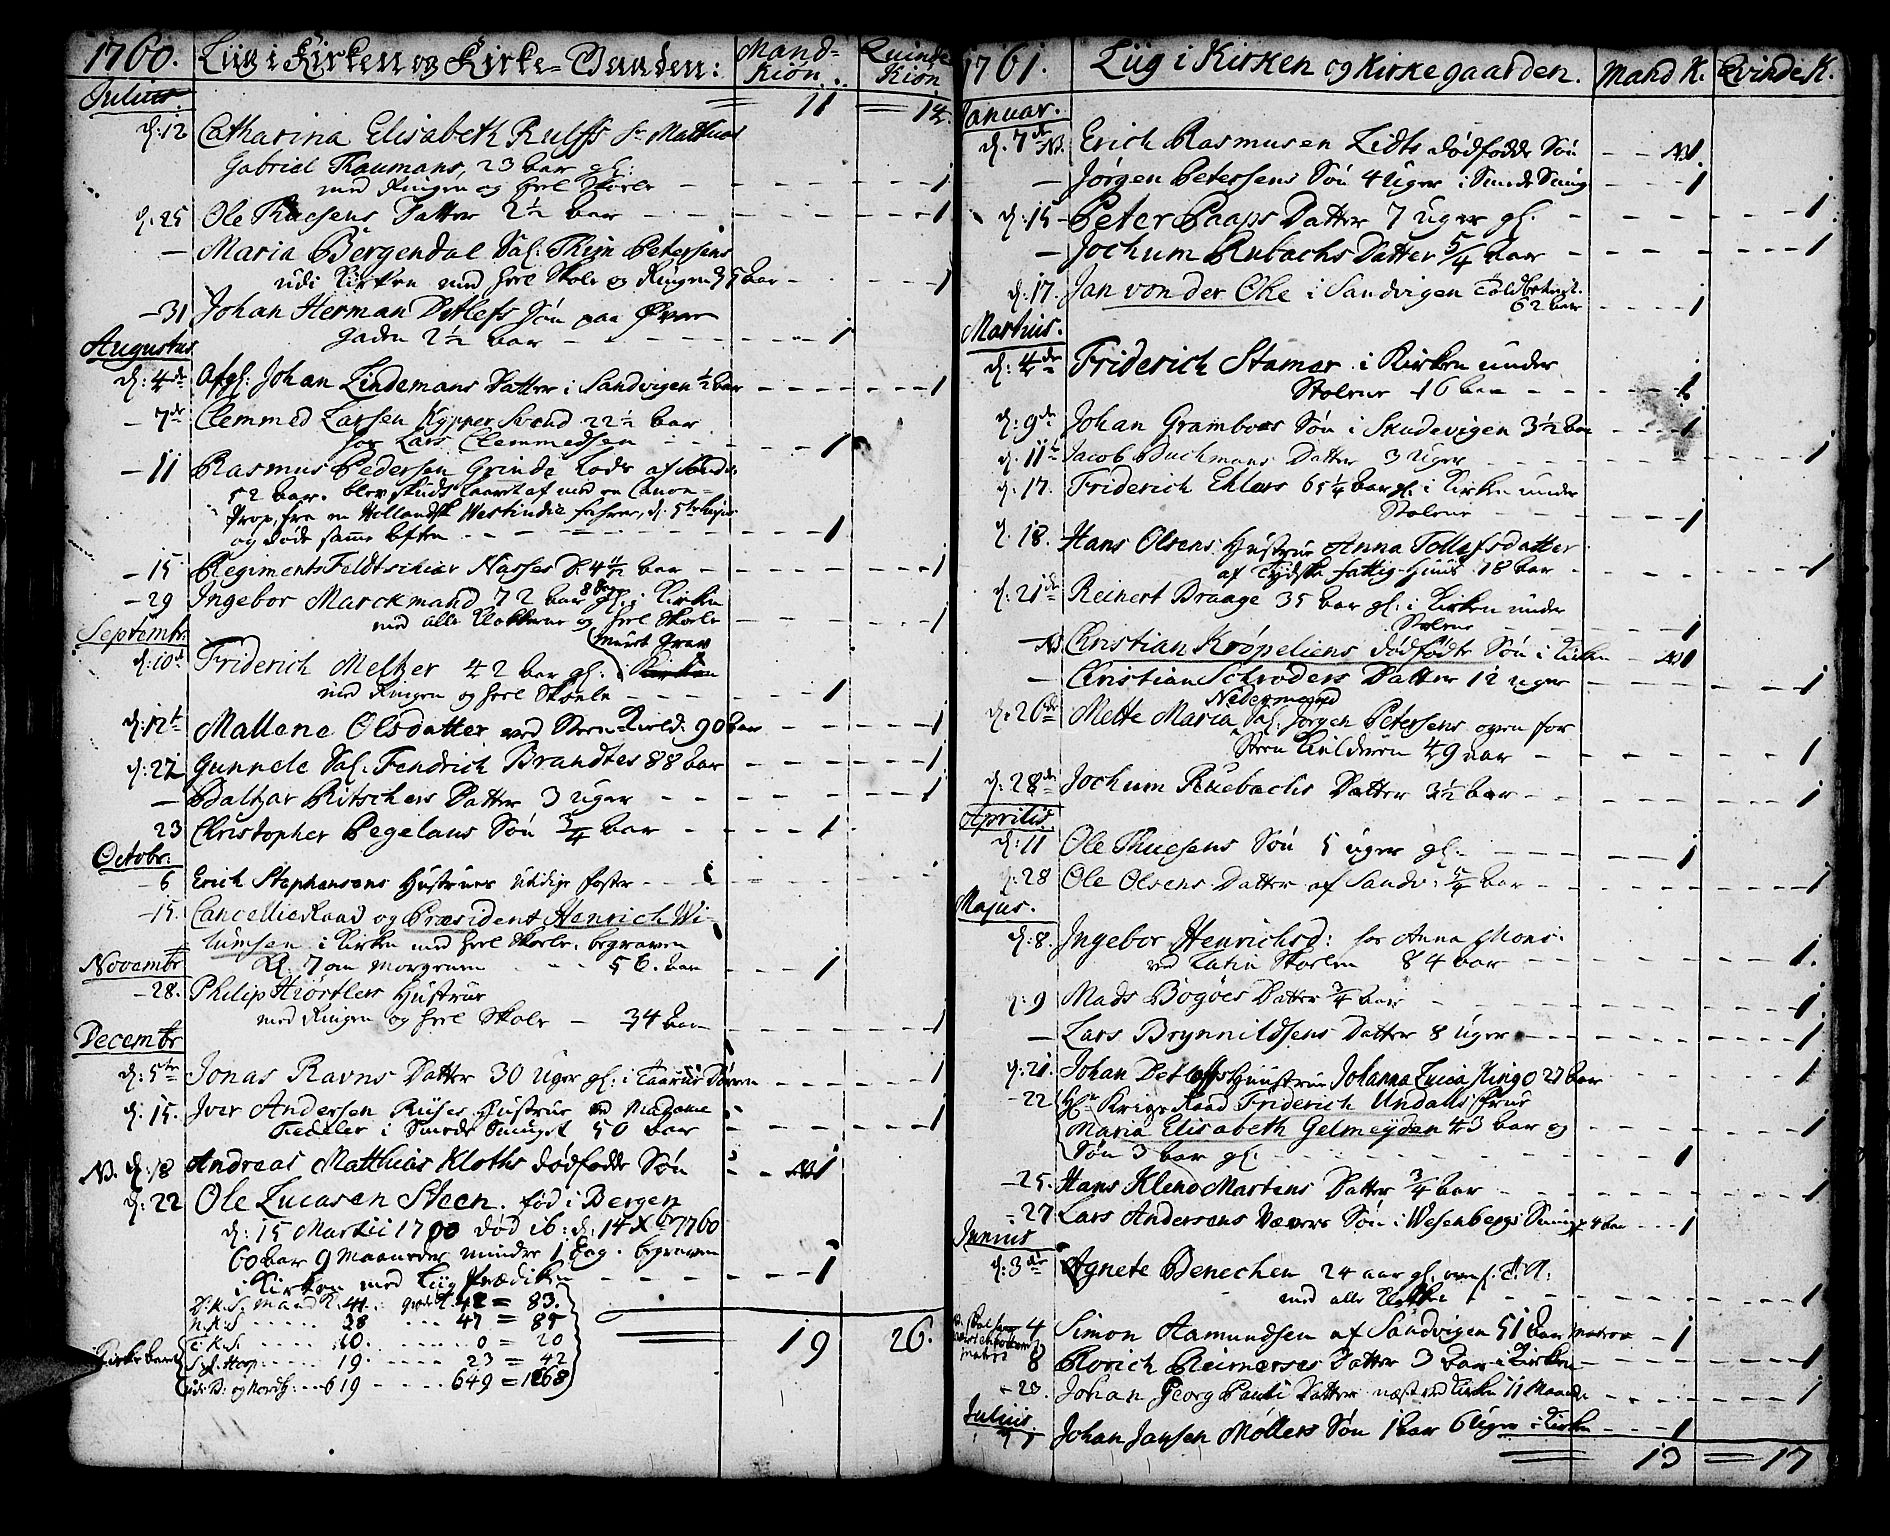 1760. Liig i Kirken og Kirke= Mand= Kiøn. Quinde Kiøn
Julius = 11 = 14.
d: 12 Catharina Elisabeth Rulffs Sr Mathias
Gabriel Traumans, 23 aar gl:
med Ringen og heel Skole - - - 1
d: 25 Ole Thuesens Datter 2 1/2 aar - - - 1
- Maria Bergendal Sal. Thijn Petersens
udi Kirken med heel Skole og Ringen aar - - - 1
- 31 Johan Herman Detlefs Søn paa Øvre
gaden 2 1/2 aar - - - 1
Augustus
d: 4de Afgl: Johan Lindemans Datter i Sandvigen 1/2 aar - - - 1
- 7de Clemmed Larsen Kypper Svend 22 1/2 aar
hos Lars Clemmedsen - - - 1
- 11 Rasmus Pedersen Grinde Lods af
52 aar. blev skudt Laaret af med en Canon=
Prop, fra en Hollandsk Westindie fahrer, d: 5te hujus
og døde samme Aften - - - 1
- 15 Regiments Feldtschiær Nasses D. 4 1/2 aar - - - 1
- 29 Ingebor Marckmand 72 aar gl: i Kirken
med alle Klokkerne og heel Skole - - - 1
Septembr.
d: 10de Friderich Meltzer 42 aar gl. muret Grav Kirken
med Ringen og heel Skole - - - 1
d: 12te Mallene Olsdatter ved Steen Kield: 90 aar - - - 1
d: 22 Gunnele Sal. Fendrich Brandtes 88 aar - - - 1
- Baltzar Ritschers Datter 3 uger - - - 1
23 Christopher Pegelaus Søn 3/4 aar - - - 1
Octobr:
- 6 Erich Stephensens Hustrues utidige foster - - - 1
- 15. Cancellie Raad og Præsident Henrich Wi-
lumsen i Kirken med heel Skole, begraven
Kl. 7 om Morgenen - - 56. aar - - - 1
Novembr
- 28. Philip Hiørtlers Hustrue
med Ringen og heel Skole - 34 aar - - - 1
Decembr
d: 5te Jonas Ravns Datter 30 Uger gl: i Taarne Døren - - - 1
d: 15. Iver Andersen Riises Hustrue ved Madame
Fedeler i Smede Smuget 50 aar - - - 1
NB. d: 18 Andreas Matthias Kloths dødfødde Søn - - NB 1
d: 22 Ole Lucasen Steen. fød i Bergen
d: 15 Martii 1700 død ib: d: 14 Xbr 1760
60 aar 9 Maaneder mindre 1 Dag. begraven
i Kirken med Liig Prædiken - - - 1
D.K.S. Mand K. 41. qvinde K. 42 = 83.
N.K.S ..... 38 .... 47 = 85
T.K.S. .... 10. .... 0 = 20
S. J. Hosp ..... 19. ..... 23 = 42
..... 619 ..... 649 = 1268
= 19 26.
1761. Liig i Kirken og Kirkegaarden. Mand K. Qvinde K.
Januar.
d. 7de NB. Erich Rasmusen Lidts dødfødde Søn - - NB 1
- Jørgen Petersens Søn 4 Uger i Smede Smug - - - 1
d: 15 - Peter Paaps Datter 7 uger gl. - - - 1
- Jochum Rubachs Datter 5/4 aar - - - 1
d: 17. Jan von der Ohe i Sandvigen Toldbetient.
62 aar - - - 1
Martius.
d: 4de Friderich Stamer i Kirken under
Stolene 16 aar - - - 1
d: 9de Johan Gramboes Søn i Skudevigen 3 1/2 aar - - - 1
d: 11te Jacob Buchmans Datter 3 Uger - - - 1
d: 17. Friderich Ehlers 65 1/4 aar gl. i Kirken under
Stolene - - - 1
d: 18. Hans Olsens Hustrue Anna Tollefsdatter
af Tydske fattig-Huus 18 aar - - - 1
d: 21de Reinert Braage 35 aar gl: i Kirken under
Stolene - - - 1
- NB Christian Krøpeliens dødfødte Søn i Kirken - NB 1
- Christian Schrøders Datter 12 uger - - - 1
Nedermand
d: 26de Mette Maria Sal. Jørgen Petersens oven for
Steen Kielderen 49 aar - - - 1
d: 28de Jochum Ruebachs Datter 3 1/2 aar - - - 1
Aprilis.
d: 11 Ole Thuesens Søn 5 uger gl. - - - 1
d: 28 Ole Olsens Datter af Sandv: 5/4 aar - - - 1
Majus.
d: 8. Ingebor Henrichsd: hos Anna Mons.
ved Latin Skolen 84 aar - - - 1.
d: 9 Mads Bogøes Datter 3/4 aar - - - 1
- Lars Brynnildsens Datter 8 uger - - - 1
d: 21. Johan Detloffs Huustrue Johanna Lucia Kingo 27 aar - - - 1
- 22 Hr. Krigs Raad Friderich Undalls frue
Maria Elisabeth Gelmeyden 43 aar og - - - 1
Søn 3 aar gl. - - - 1
- 25. Hans Kleno Martens Datter 3/4 aar - - - 1
- 27. Lars Andersens Vævers Søn i Wesenbergs Smug 4 aar - - - 1
Junius
d: 3de Agnete Benechen 24 aar gl.
med alle Klokker - - - 1
4 Simon Aamundsen af Sandvigen 51 aar Matros - 1
8 Rorich Reimerses Datter 3 aar i Kirken - - - 1
- 20. Johan Georg Pauli Datter næst ved Kirken 11 Maaneder - - - 1
Julius
Johan Jansen Møllers Søn 1 aar 6 Uger i Kirken - - - 1
= 13 = 17